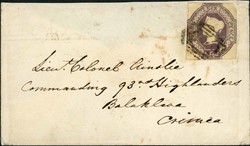 Lieut. Colonel Ainslie
Commanding 93rd Highlanders
Balaklava
Crimea